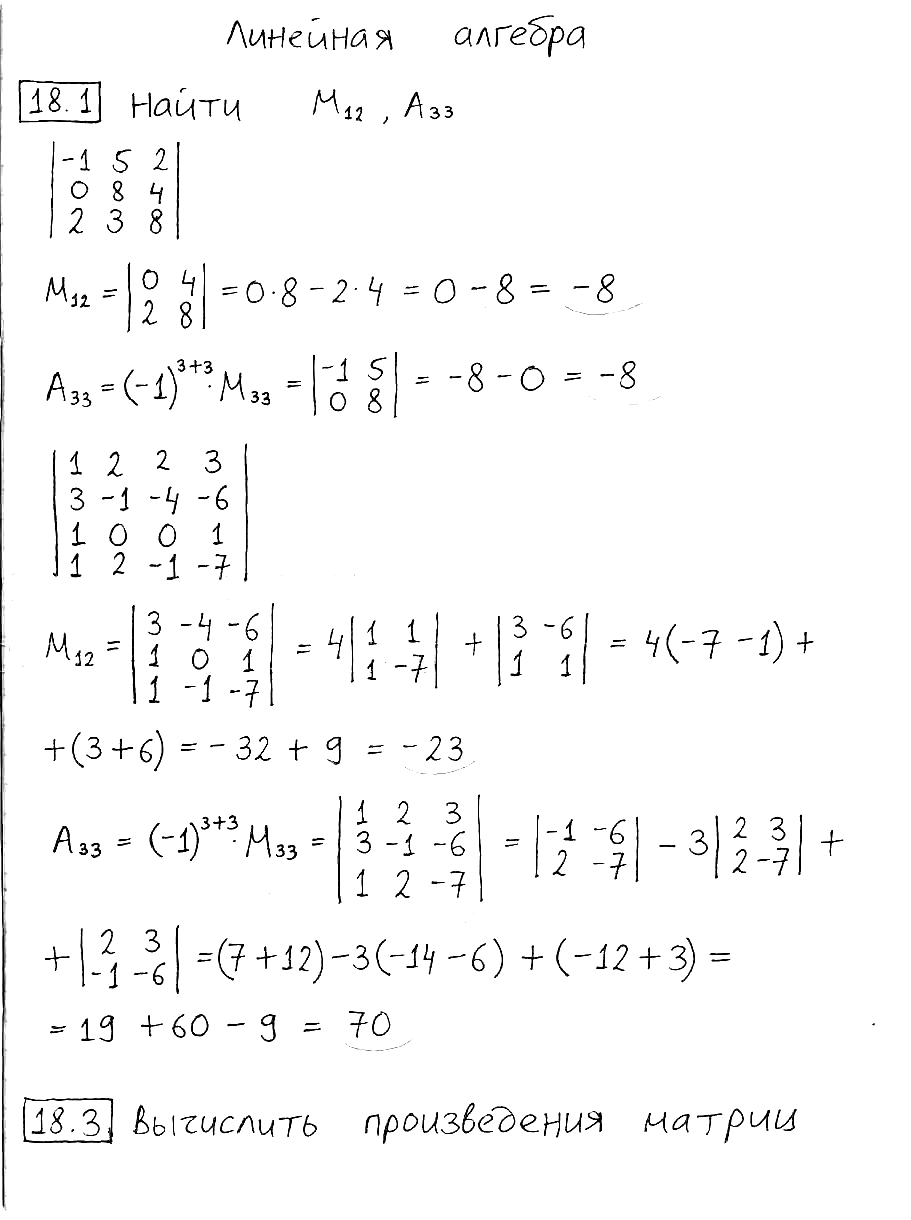 Линейная алгебра
18.1 Найти M₁₂, A₃₃
|-1 5 2|
|0 8 4|
|2 3 8|
M₁₂ = |0 4; 2 8| = 0·8 - 2·4 = 0 - 8 = -8
A₃₃ = (-1)³⁺³· M₃₃ = |-1 5; 0 8| = -8 - 0 = -8
|1 2 2 3|
|3 -1 -4 -6|
|1 0 0 1|
|1 2 -1 -7|
M₁₂ = |3 -4 -6; 1 0 1; 1 -1 -7| = 4|1 1; 1 -7| + |3 -6; 1 1| = 4(-7 -1) +
+(3+6) = -32 + 9 = -23
A₃₃ = (-1)³⁺³· M₃₃ = |1 2 3; 3 -1 -6; 1 2 -7| = |-1 -6; 2 -7| - 3|2 3; 2 -7| +
+|2 3; -1 -6| = (7+12) -3(-14 -6) + (-12+3) =
= 19 + 60 - 9 = 70
18.3 Вычислить произведения матриц